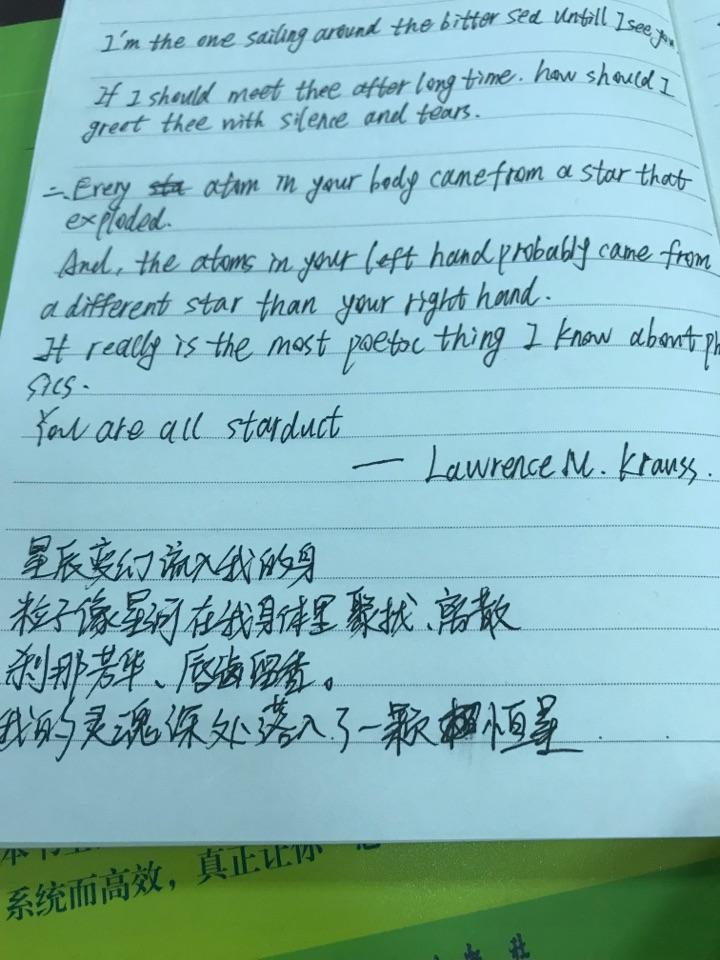 I'm the one sailing around the bitter sea untill I see you
If I should meet thee after long time. how should I
greet thee with silence and tears.
二. Every atom in your body came from a star that
exploded.
And, the atoms in your left hand probably came from
a different star than your right hand.
It really is the most poetoc thing I know about ph
sics.
You are all starduct
— Lawrence M. Krauss.
星辰变幻流入我的身
粒子像星河在我身体里聚拢、离散
刹那芳华、唇齿留香。
我的灵魂深处落入了一颗恒星
系统而高效，真正让你